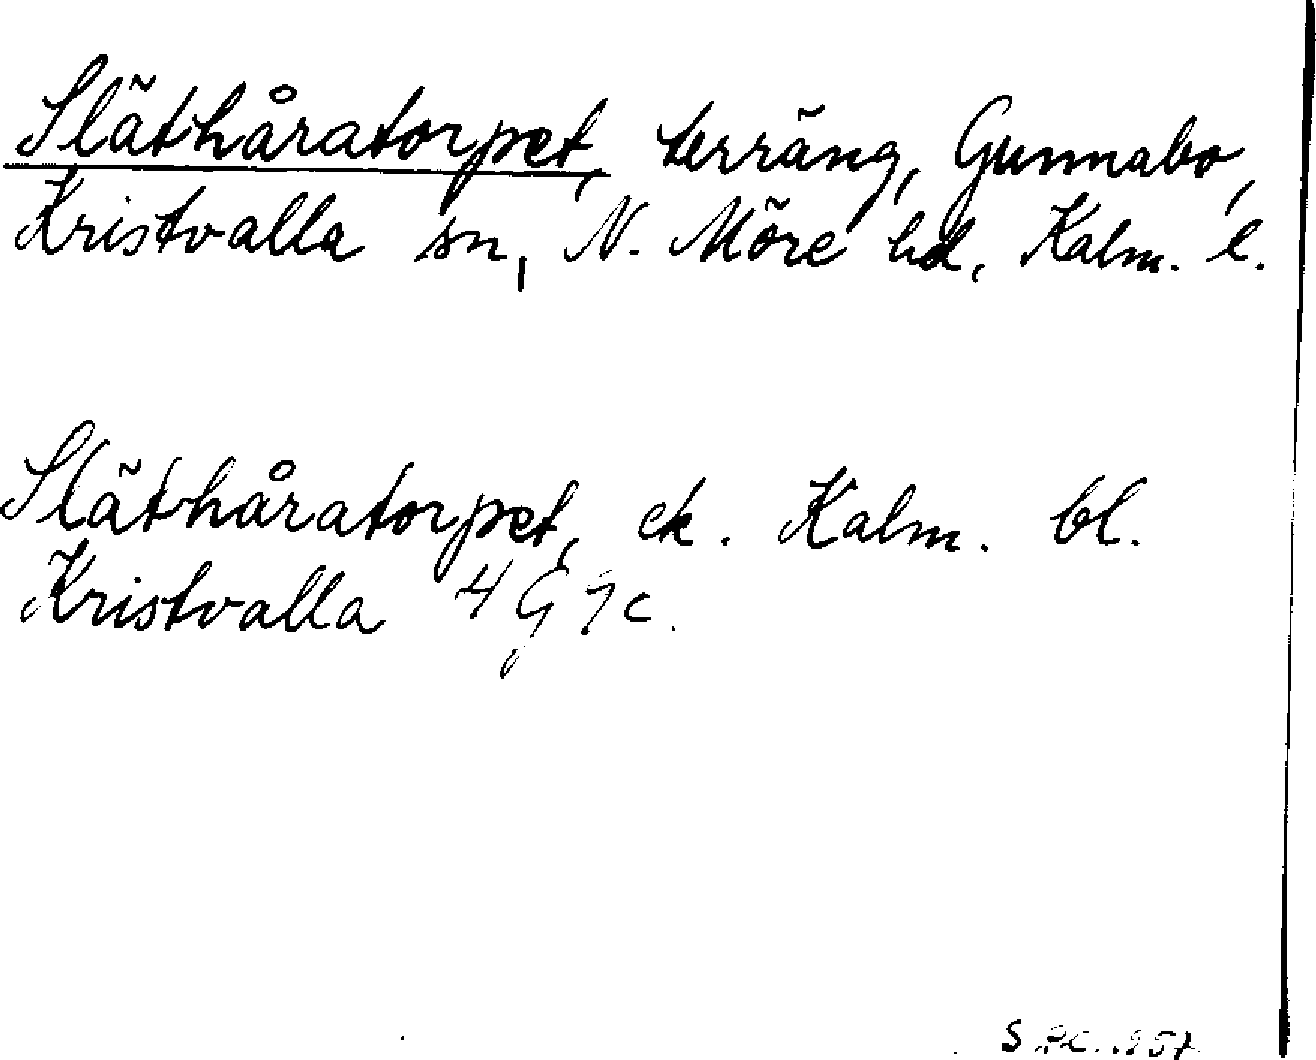 Släthåratorpet, terräng, Gunnabo,
Kristvalla sn, N. Möre hd, Kalm. l.
Släthåratorpet, ek. Kalm. bl.
Kristvalla 4 G 9c.